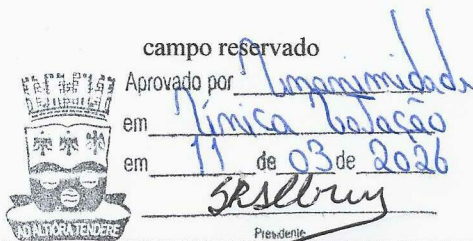 campo reservado
Aprovado por Unanimidade
em Única Votação
em 11 de 03 de 2026
Presidente
AD ALTIORA TENDERE